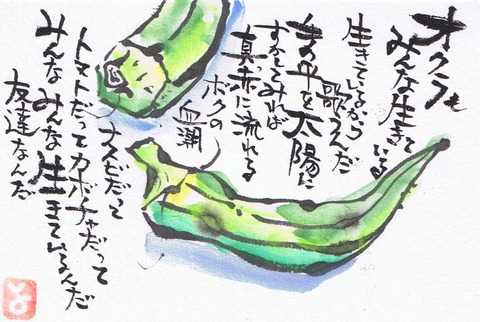 オクラも
みんな生きている
生きているから
歌うんだ
手の平を太陽に
すかしてみれば
真っ赤に流れる
ボクの
血潮
ナスビだって
トマトだってカボチャだって
みんなみんな生きているんだ
友達なんだ